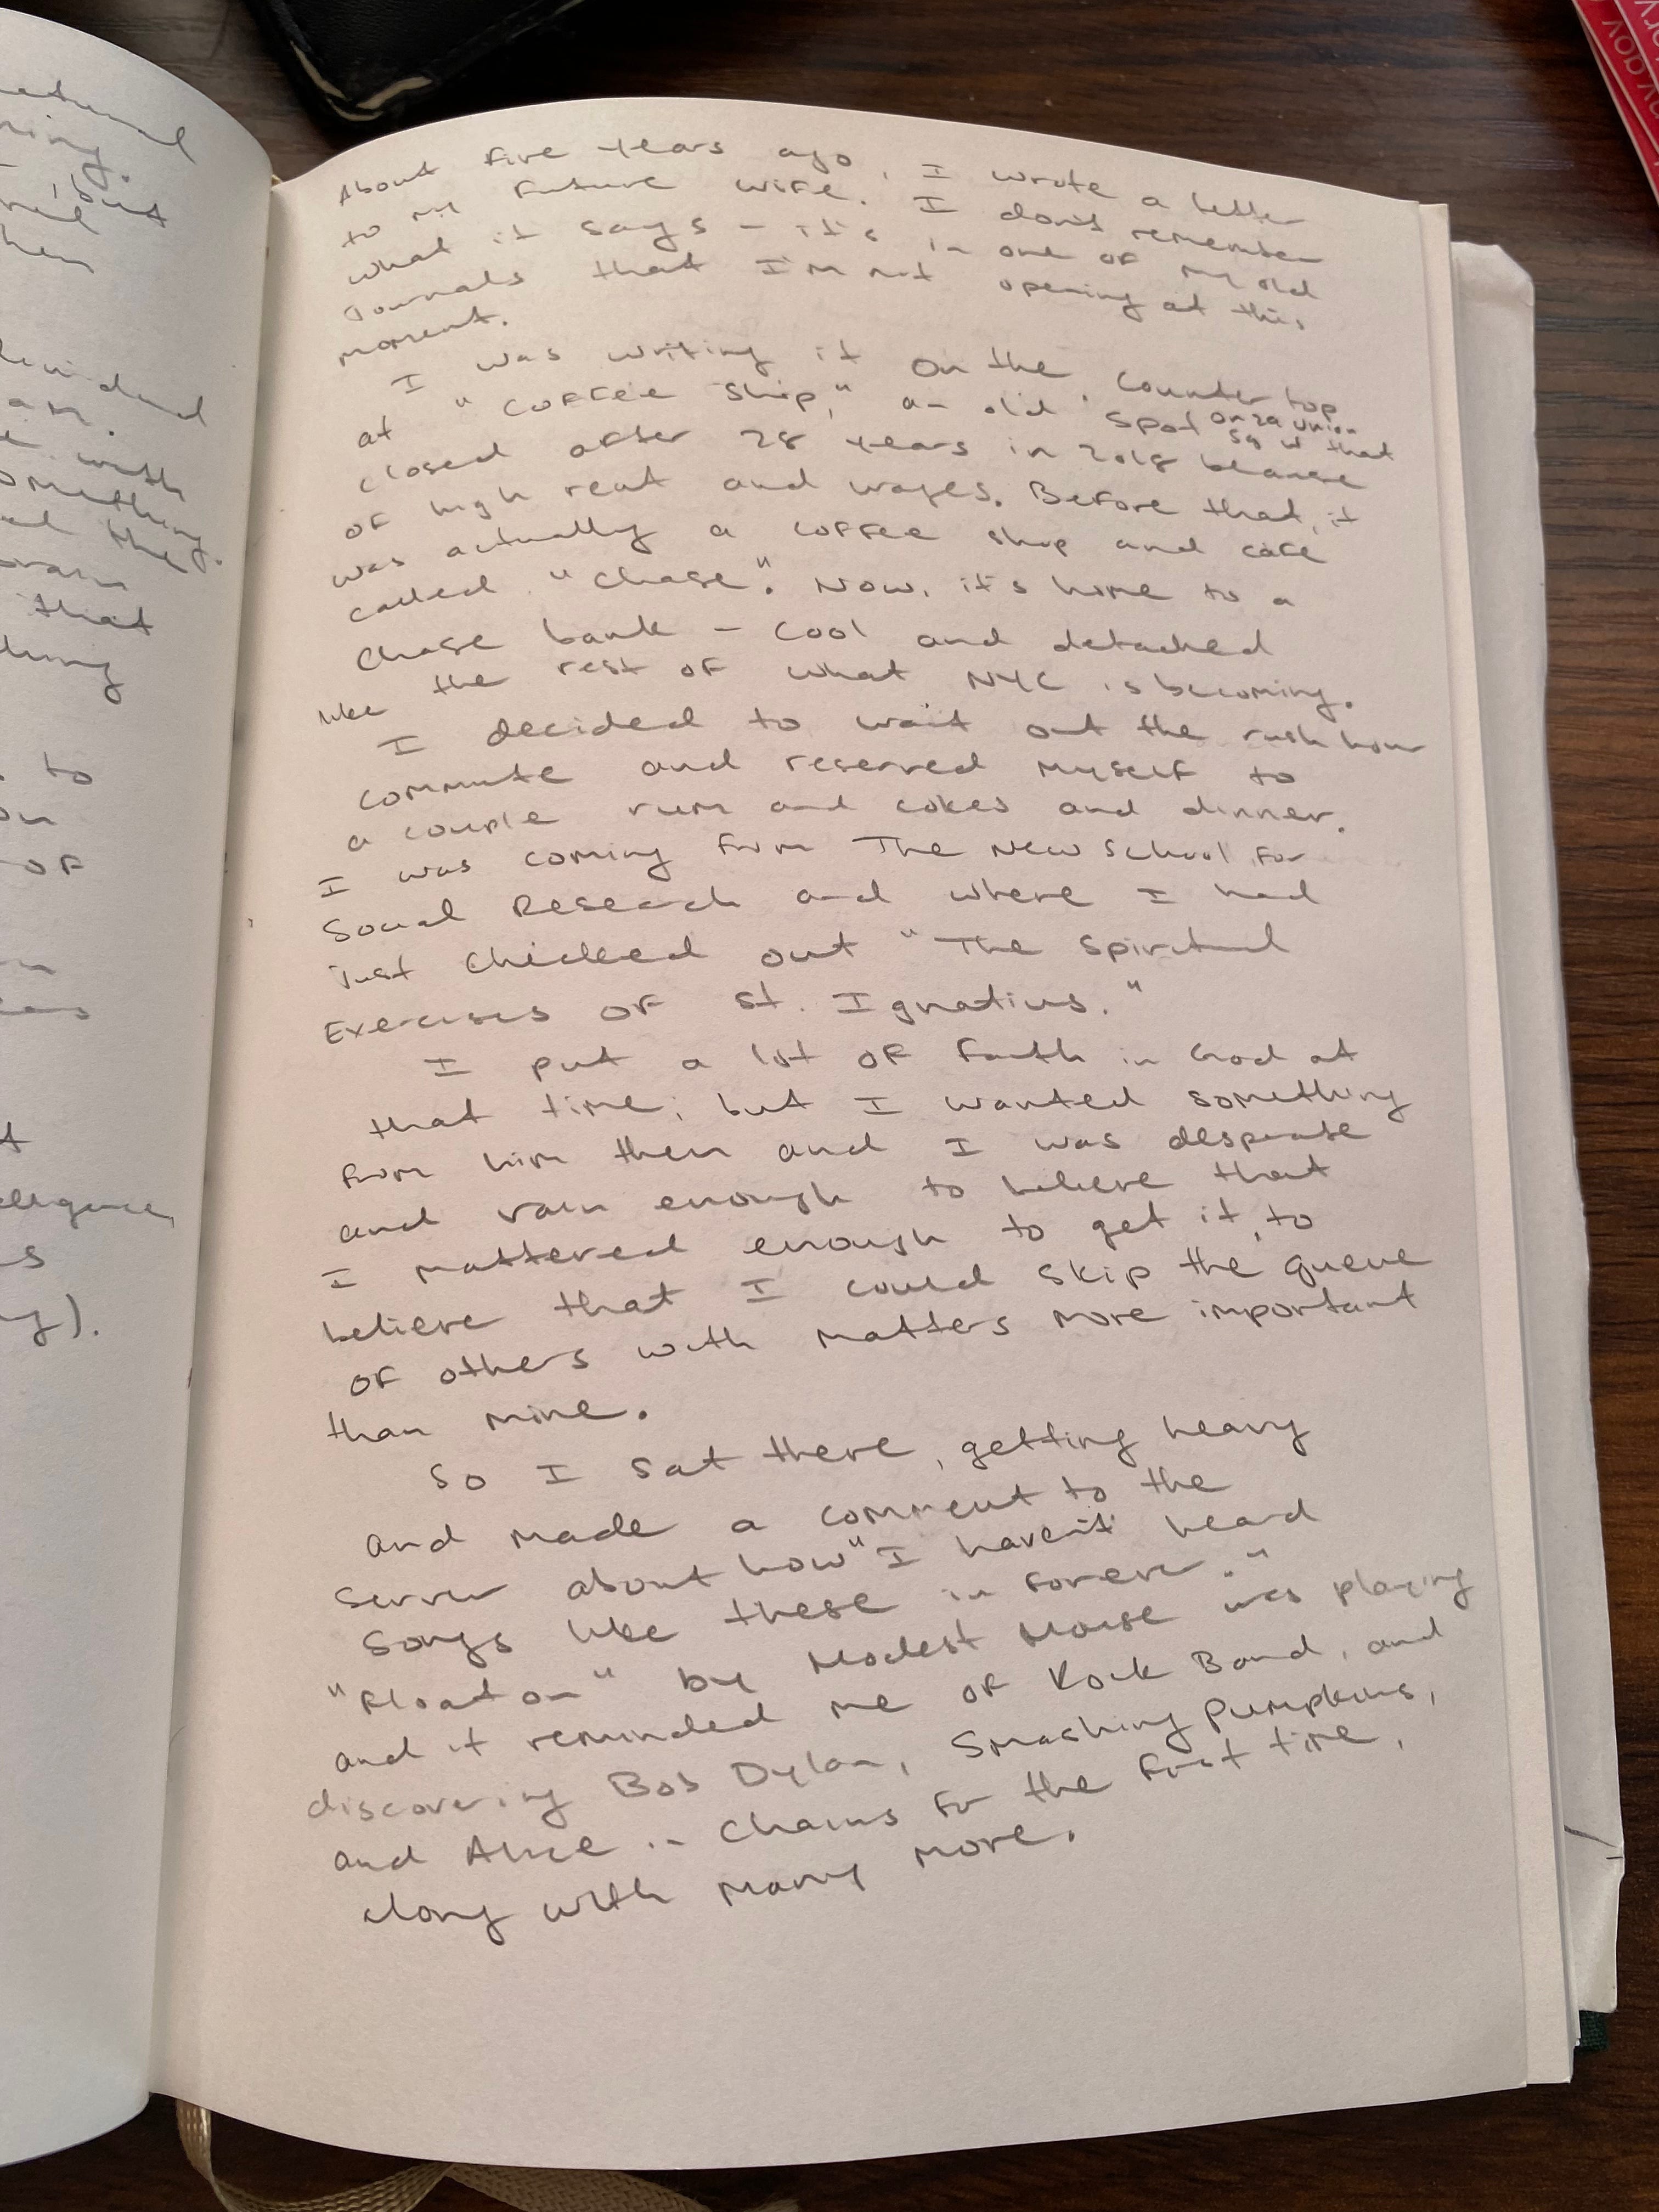 About five years ago, I wrote a letter
to my future wife. I don't remember
what it says - it's in one of my old
journals that I'm not opening at this
moment.
I was writing it on the counter top
at "Coffee Shop," an old spot on 29 Union Sq W that
closed after 28 years in 2018 because
of high rent and wages. Before that, it
was actually a coffee shop and cafe
called "Chase". Now, it's home to a
Chase bank - cool and detached
like the rest of what NYC is becoming.
I decided to wait out the rush hour
commute and reserved myself to
a couple rum and cokes and dinner.
I was coming from The New School for
Social Research and where I had
just checked out "The Spiritual
Exercises of St. Ignatius."
I put a lot of faith in God at
that time; but I wanted something
from him then and I was desperate
and vain enough to believe that
I mattered enough to get it, to
believe that I could skip the queue
of others with matters more important
than mine.
So I sat there, getting heavy
and made a comment to the
server about how "I haven't heard
songs like these in forever."
"Float on" by Modest Mouse was playing
and it reminded me of Rock Band, and
discovering Bob Dylan, Smashing Pumpkins,
and Alice in Chains for the first time,
along with many more.
that
to
of
s